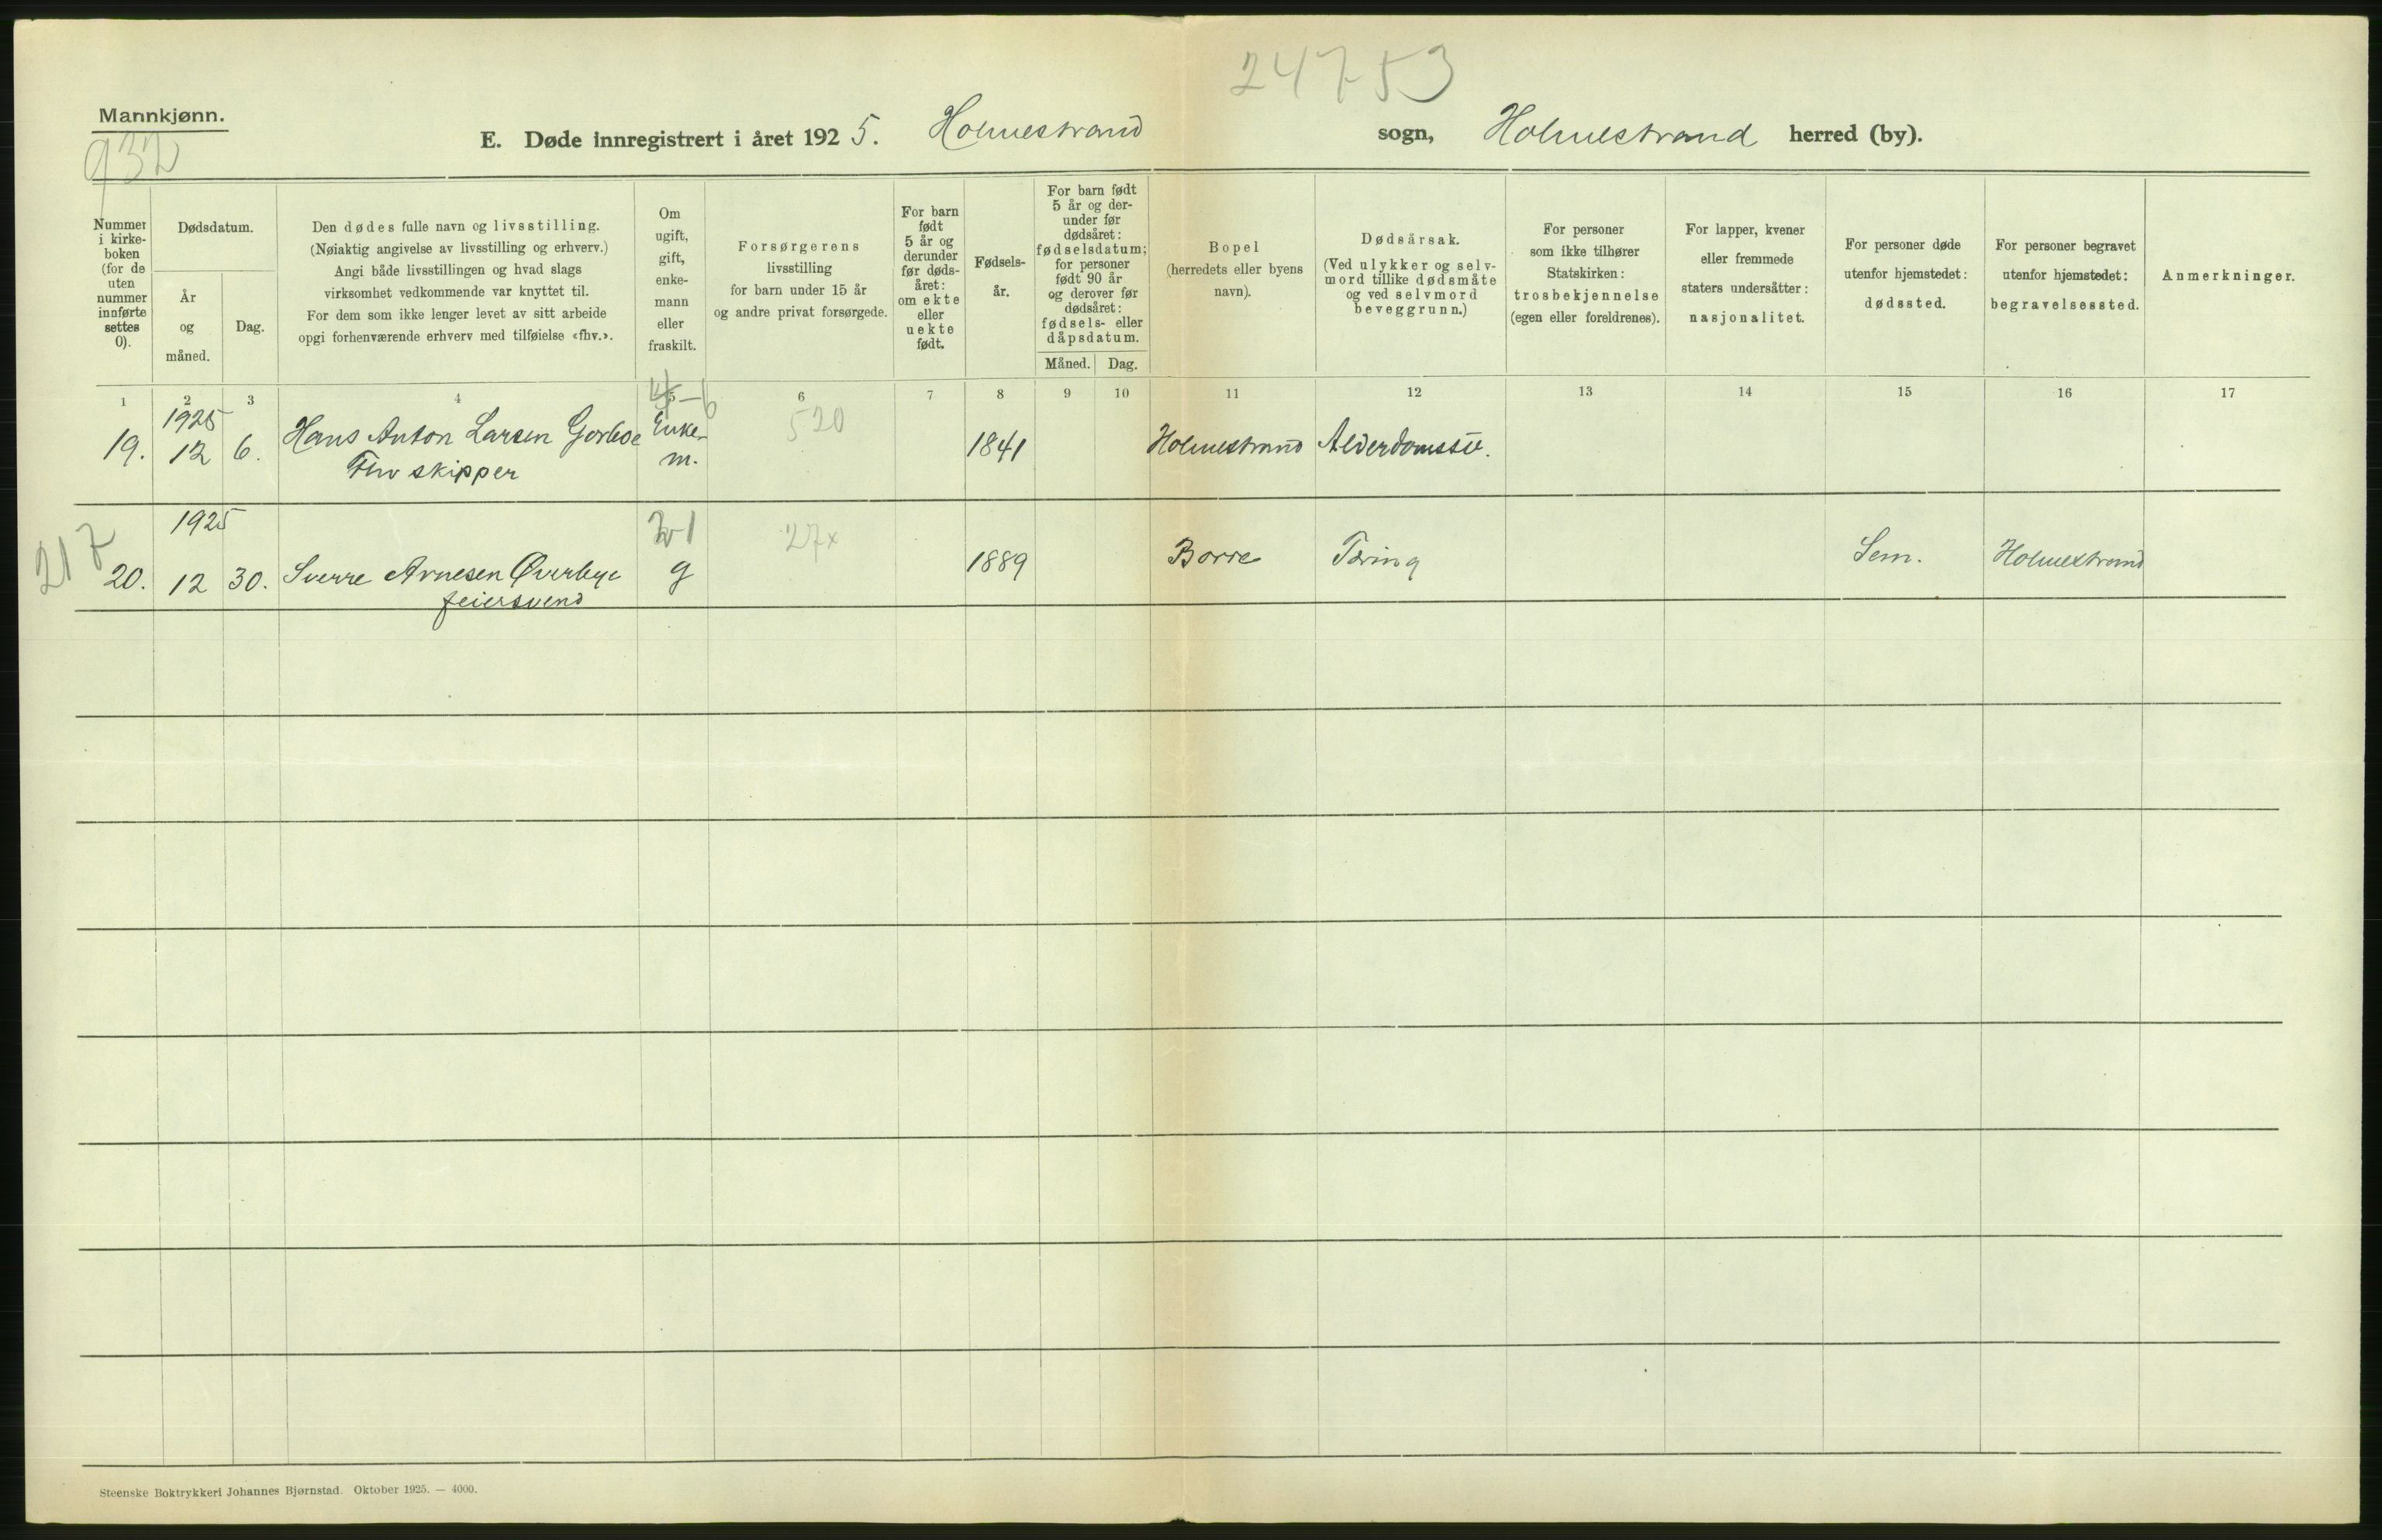 24753
Mannkjønn.
932
E. Døde innregistrert i året 1925. Holmestrand sogn, Holmestrand herred (by).
Nummer
i kirke-
boken
(for de
uten
nummer
innførte
settes
0).
Dødsdatum.
År
og
måned.
Dag.
Den dødes fulle navn og livsstilling.
(Nøiaktig angivelse av livsstilling og erhverv.)
Angi både livsstillingen og hvad slags
virksomhet vedkommende var knyttet til.
For dem som ikke lenger levet av sitt arbeide
opgi forhenværende erhverv med tilføielse «fhv.».
Om
ugift,
gift,
enke-
mann
eller
fraskilt.
Forsørgerens
livsstilling
for barn under 15 år
og andre privat forsørgede.
For barn
født
5 år og
derunder
før døds-
året:
om ekte
eller
uekte
født.
Fødsels-
år.
For barn født
5 år og der-
under før
dødsåret:
fødselsdatum;
for personer
født 90 år
og derover før
dødsåret:
fødsels- eller
dåpsdatum.
Måned. Dag.
Bopel
(herredets eller byens
navn).
Dødsårsak.
(Ved ulykker og selv-
mord tillike dødsmåte
og ved selvmord
beveggrunn.)
For personer
som ikke tilhører
Statskirken:
trosbekjennelse
(egen eller foreldrenes).
For lapper, kvener
eller fremmede
staters undersåtter:
nasjonalitet.
For personer døde
utenfor hjemstedet:
dødssted.
For personer begravet
utenfor hjemstedet:
begravelsessted.
Anmerkninger.
1 2 3 4 5 6 7 8 9 10 11 12 13 14 15 16 17
1925
19. 12 6. Hans Anton Larsen Enke- 520 1841 Holmestrand Alderdomssv.
Fhv skipper m.
1925
217
20. 12 30. Sverre Arnesen Øverbye g 27x 1889 Borre Tæring Sem. Holmestrand
feiersvend
Steenske Boktrykkeri Johannes Bjørnstad. Oktober 1925. — 4000.